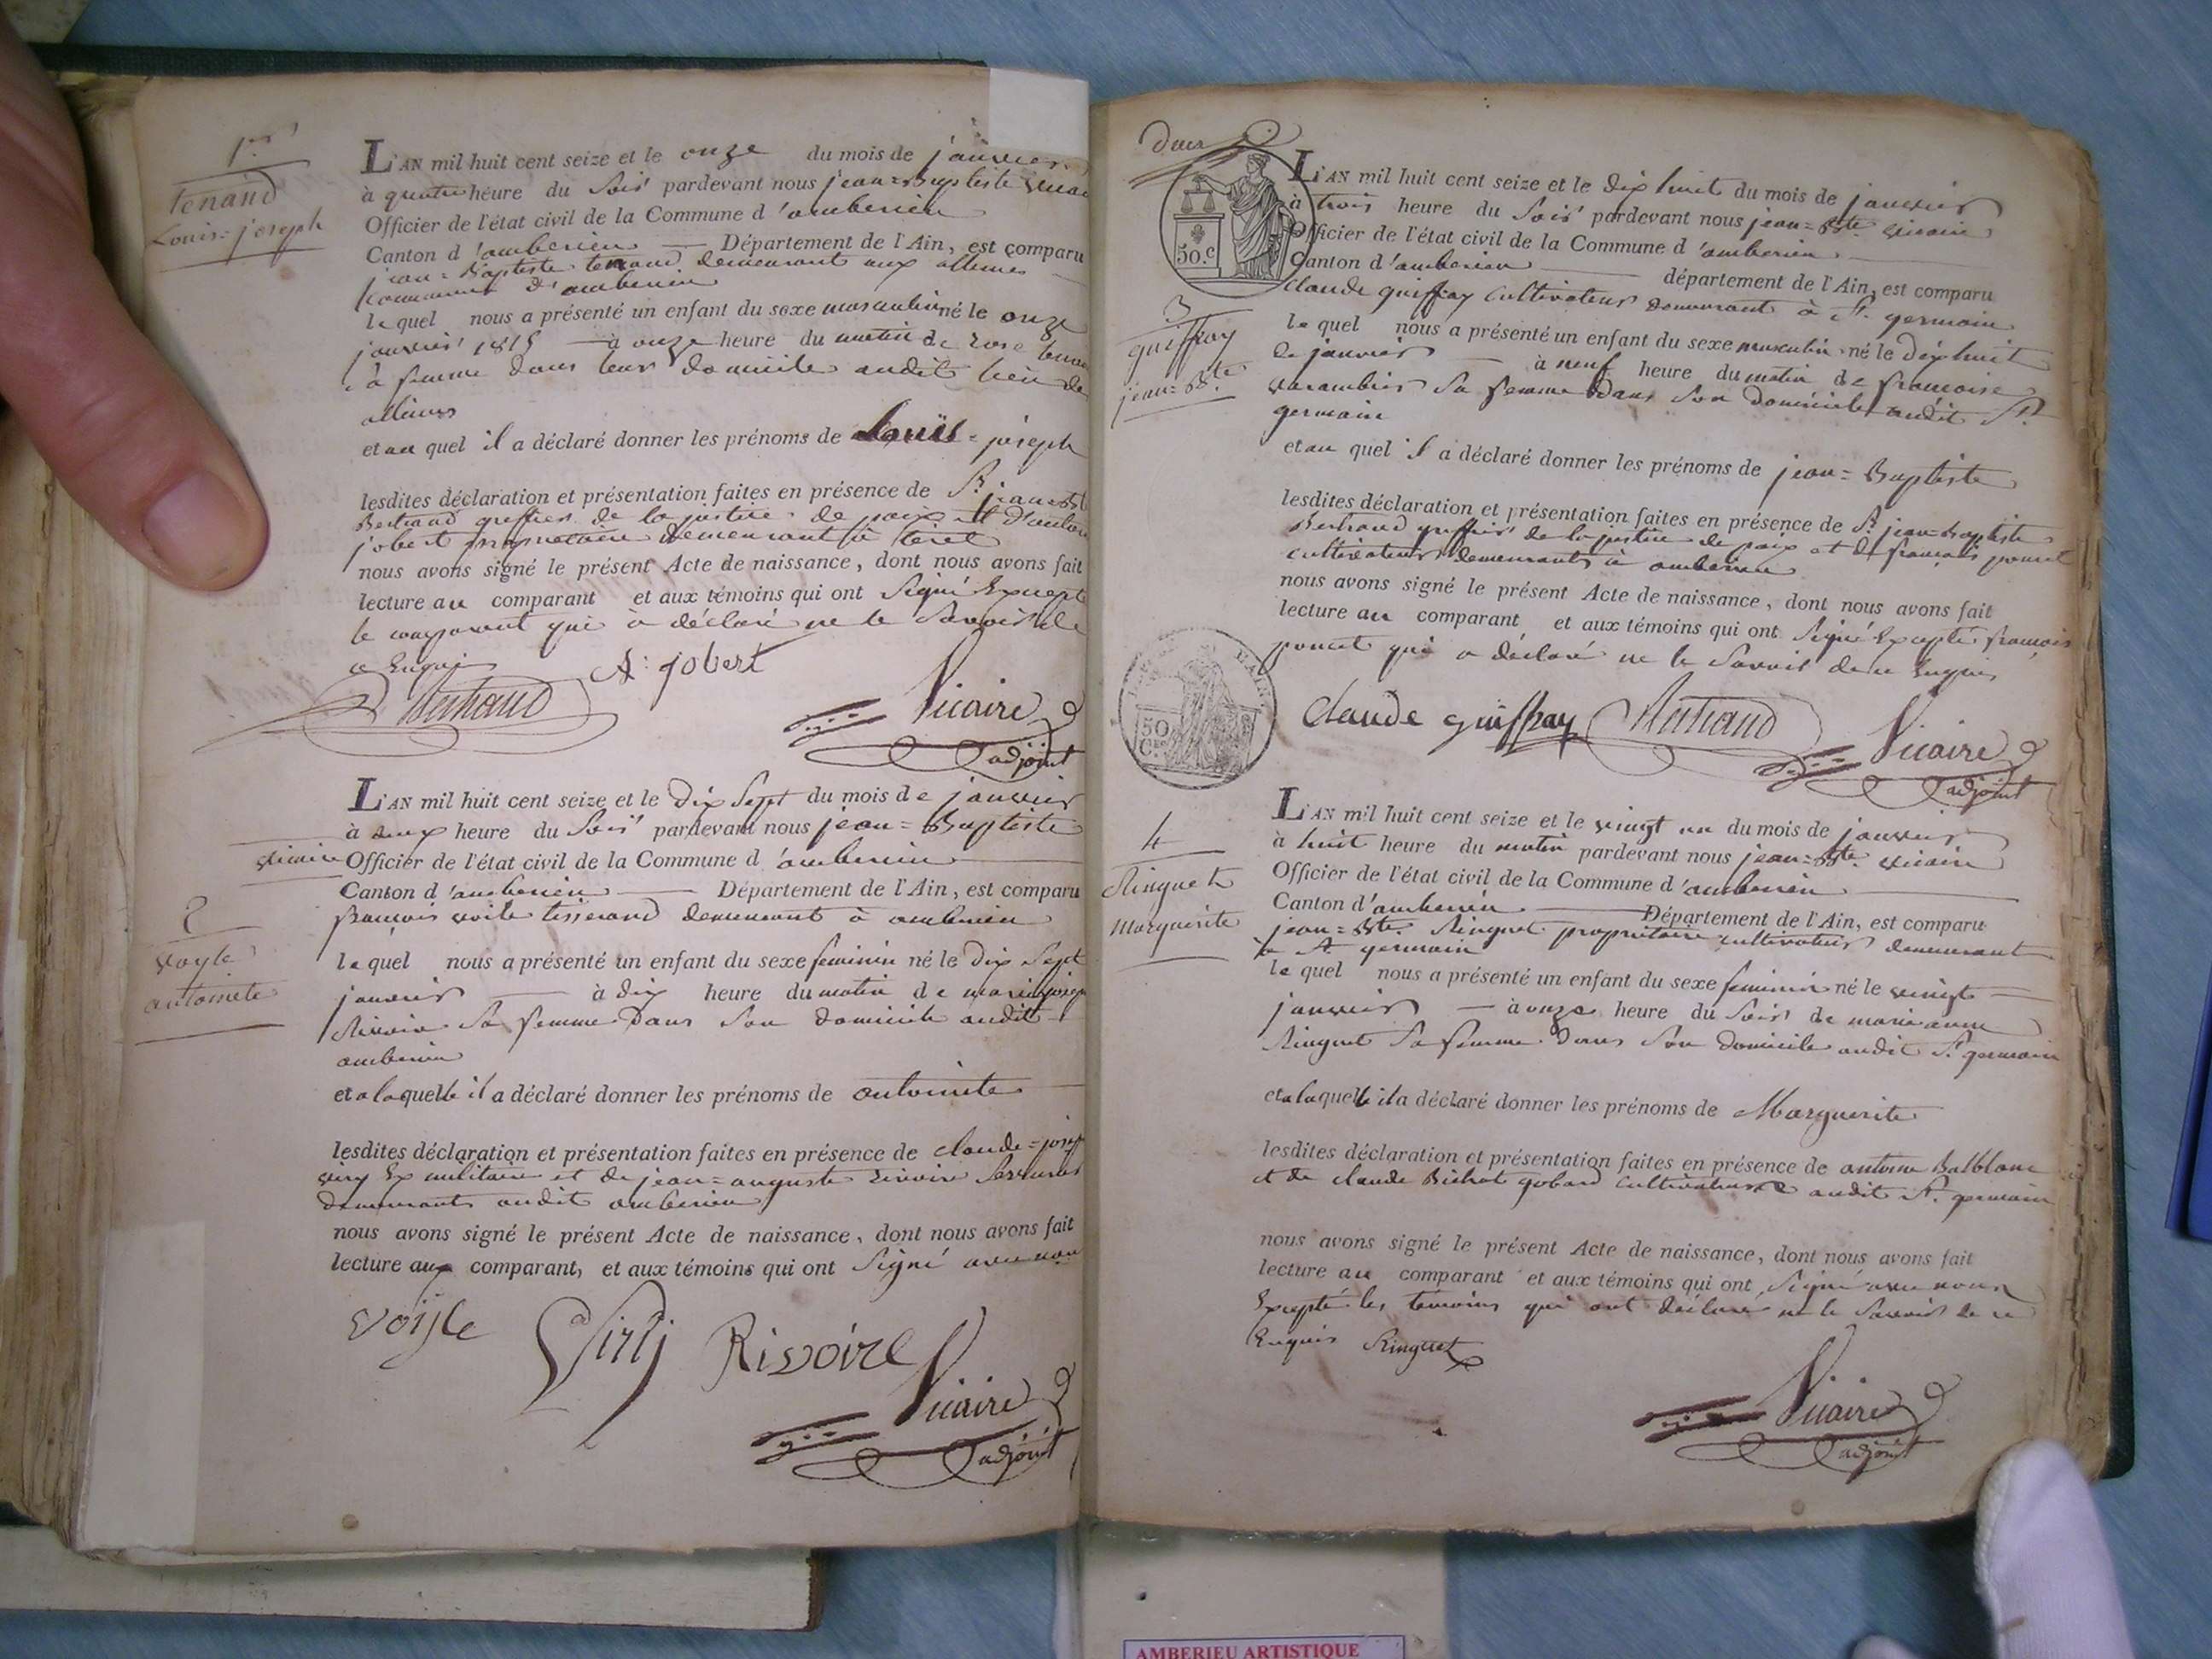 1er
tenand
Louis=joseph
L'AN mil huit cent seize et le onze du mois de janvier
à quatre heure du Soir pardevant nous jean=Baptiste
Officier de l'état civil de la Commune d'amberieu
Canton d'amberieu Département de l'Ain, est comparu
jean=Baptiste tenand demeurant aux allimes
Commune d'amberieu
lequel nous a présenté un enfant du sexe masculin né le onze
janvier à onze heure du matin de rose
sa femme dans leur domicile audit lieu de
allimes
et au quel il a déclaré donner les prénoms de Louis=joseph
lesdites déclaration et présentation faites en présence de Sr. jean Bte
Bertrand greffier de la justice de paix et d'antoine
jobert propriétaire demeurant à
nous avons signé le présent Acte de naissance, dont nous avons fait
lecture au comparant et aux témoins qui ont Signé Excepté
le comparant qui a déclaré ne le Savoir de
ce Enquis
A: jobert
Bertrand
Vicaire
adjoint
L'AN mil huit cent seize et le Dix Sept du mois de janvier
à deux heure du Soir pardevant nous jean=Baptiste
vicaire Officier de l'état civil de la Commune d'amberieu
Canton d'amberieu Département de l'Ain, est comparu
francois voile tisserand demeurant à amberieu
2
voyle
antoinete
lequel nous a présenté un enfant du sexe feminin né le Dix Sept
janvier à dix heure du matin de marie joseph
Rivoire Sa femme Dans Son domicile audit
amberieu
et a laquelle il a déclaré donner les prénoms de antoinete
lesdites déclaration et présentation faites en présence de claude=joseph
Ex militaire et de jean=auguste rivoire Serrurier
demeurants audit amberieu
nous avons signé le présent Acte de naissance, dont nous avons fait
lecture aux comparant, et aux témoins qui ont Signé avec nous
voijle
Rivoire
Vicaire
adjoint
50.c
L'AN mil huit cent seize et le Dix huit du mois de janvier
à trois heure du Soir pardevant nous jean=Bte. vicaire
Officier de l'état civil de la Commune d'amberieu
Canton d'amberieu département de l'Ain, est comparu
claude guiffray Cultivateur demeurant à St. germain
3
guiffray
jean=Bte
lequel nous a présenté un enfant du sexe masculin né le dix huit
de janvier à neuf heure du matin de francoise
varambier Sa femme Dans Son domicile audit St.
germain
et au quel il a déclaré donner les prénoms de jean=Baptiste
lesdites déclaration et présentation faites en présence de Sr. jean Baptiste
Bertrand greffier de la justice de paix et de francois poncet
cultivateur demeurants à amberieu
nous avons signé le présent Acte de naissance, dont nous avons fait
lecture au comparant et aux témoins qui ont Signé Excepté francois
poncet qui a déclaré ne le Savoir de ce Enquis
50
claude guiffray
Bertrand
Vicaire
adjoint
L'AN mil huit cent seize et le vingt un du mois de janvier
à huit heure du matin pardevant nous jean=Bte. vicaire
Officier de l'état civil de la Commune d'amberieu
Canton d'amberieu Département de l'Ain, est comparu
4
Ringuet
Marguerite
jean=Bte. Ringuet propriétaire cultivateur demeurant
à St. germain
lequel nous a présenté un enfant du sexe feminin né le vingt
janvier à onze heure du Soir de marie anne
Ringuet Sa femme Dans Son Domicile audit St. germain
et a laquelle il a déclaré donner les prénoms de Marguerite
lesdites déclaration et présentation faites en présence de antoine Balblanc
et de claude Bichat gobard cultivateurs audit St. germain
nous avons signé le présent Acte de naissance, dont nous avons fait
lecture au comparant et aux témoins qui ont Signé avec nous
Excepté les témoins qui ont déclaré ne le Savoir de ce
Enquis Ringuet
Vicaire
adjoint
AMBERIEU ARTISTIQUE